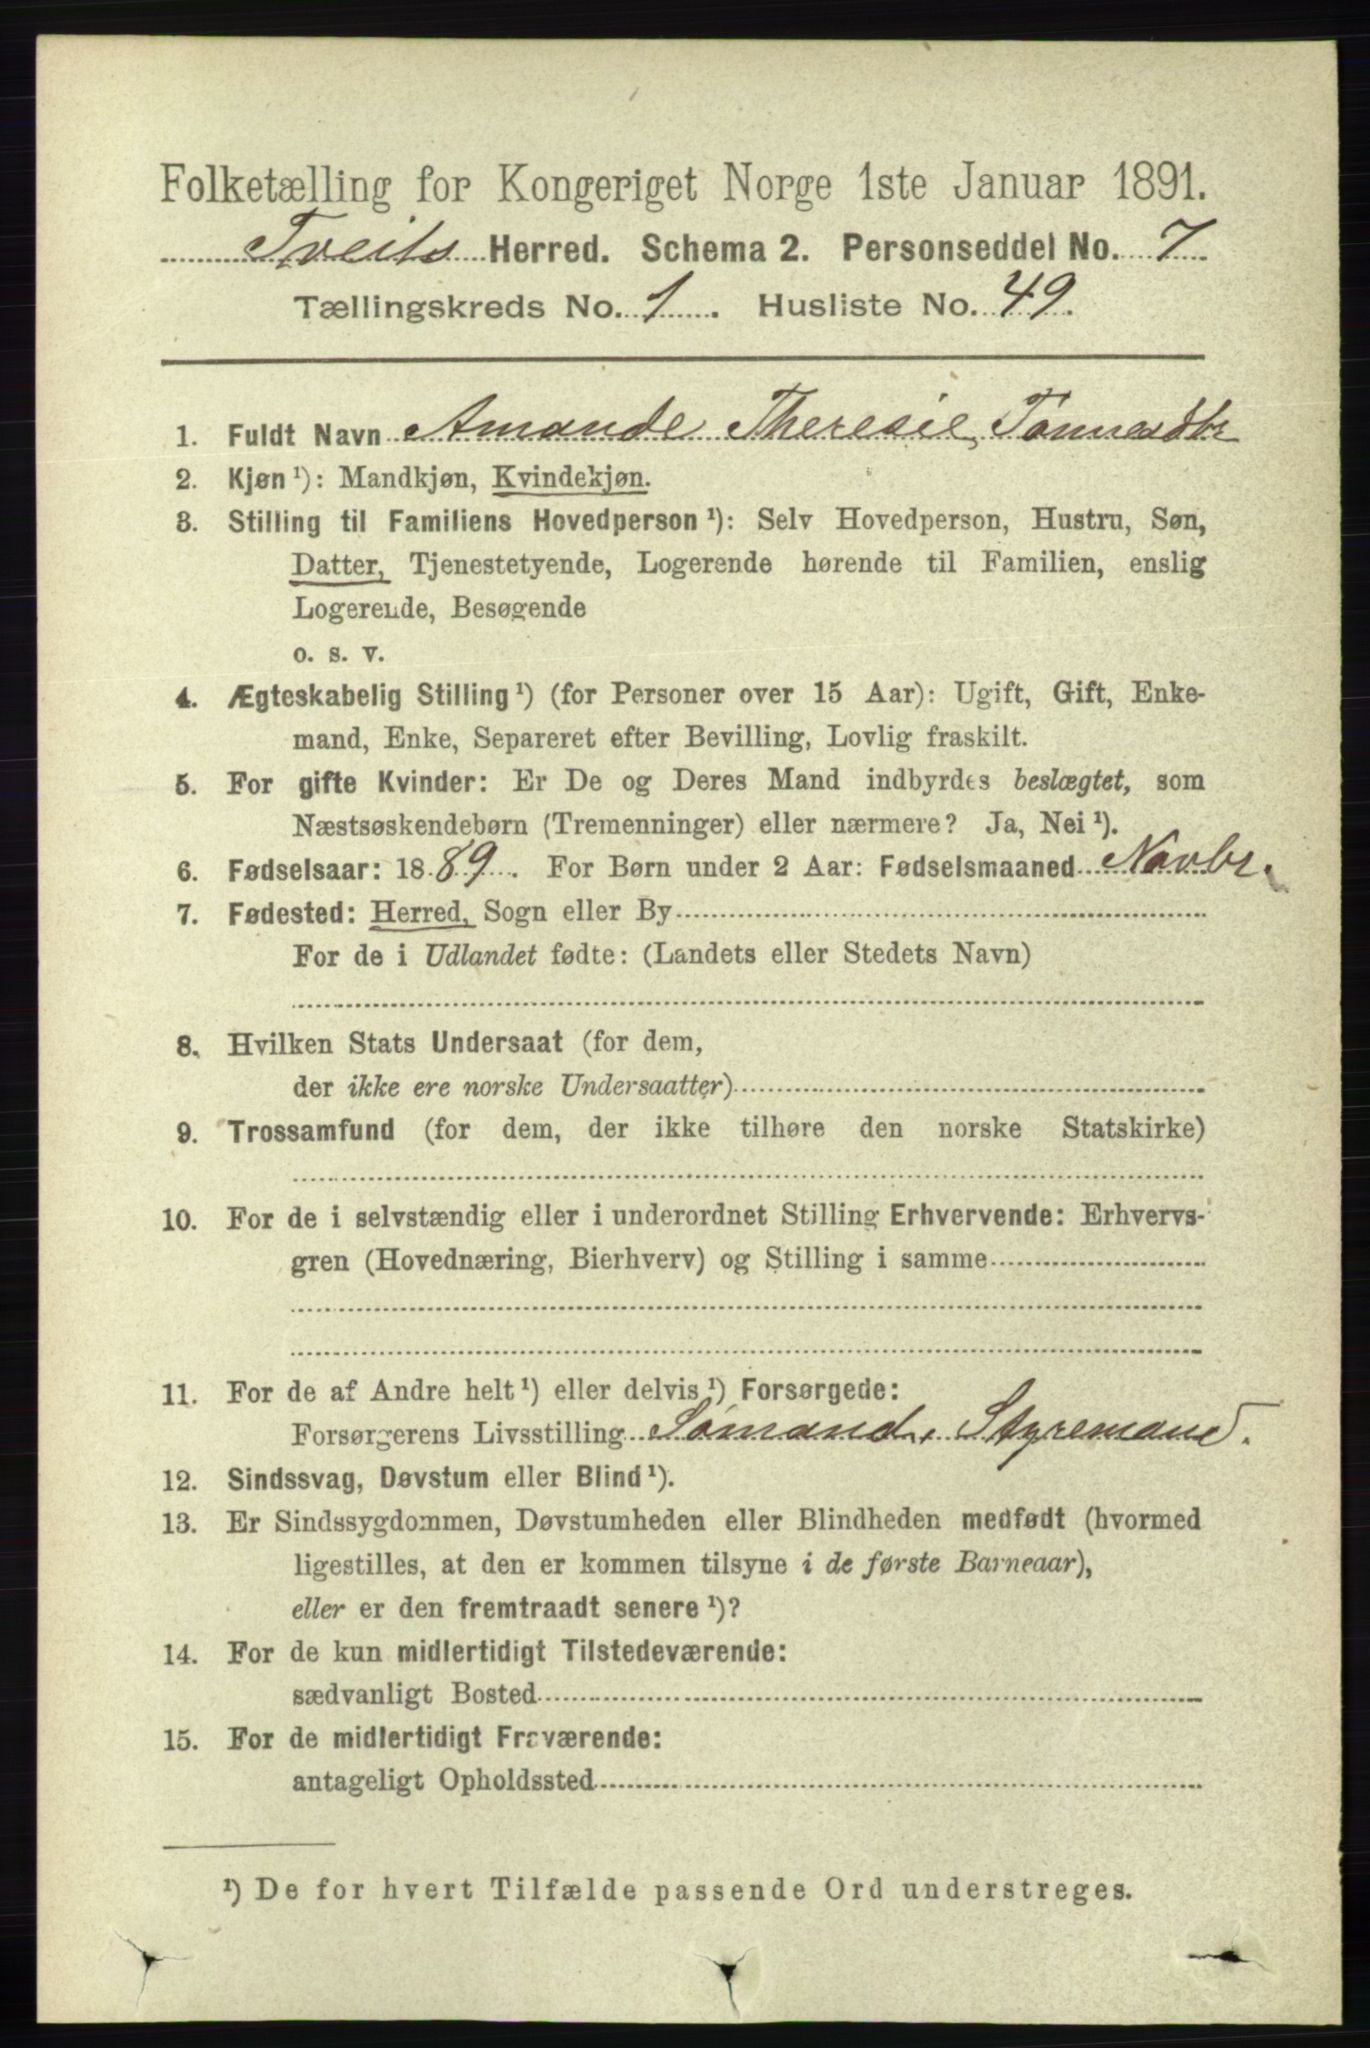 Folketælling for Kongeriget Norge 1ste Januar 1891.
Tveits Herred. Schema 2. Personseddel No. 7
Tællingskreds No. 1. Husliste No. 49.
1. Fuldt Navn Amande Theresie
2. Kjøn ¹): Mandkjøn, Kvindekjøn.
3. Stilling til Familiens Hovedperson ¹): Selv Hovedperson, Hustru, Søn,
Datter, Tjenestetyende, Logerende hørende til Familien, enslig
Logerende, Besøgende
o. s. v.
4. Ægteskabelig Stilling ¹) (for Personer over 15 Aar): Ugift, Gift, Enke-
mand, Enke, Separeret efter Bevilling, Lovlig fraskilt.
5. For gifte Kvinder: Er De og Deres Mand indbyrdes beslægtet, som
Næstsøskendebørn (Tremenninger) eller nærmere? Ja, Nei ¹).
6. Fødselsaar: 1889. For Børn under 2 Aar: Fødselsmaaned Novbr.
7. Fødested: Herred, Sogn eller By
For de i Udlandet fødte: (Landets eller Stedets Navn)
8. Hvilken Stats Undersaat (for dem,
der ikke ere norske Undersaatter)
9. Trossamfund (for dem, der ikke tilhøre den norske Statskirke)
10. For de i selvstændig eller i underordnet Stilling Erhvervende: Erhvervs-
gren (Hovednæring, Bierhverv) og Stilling i samme
11. For de af Andre helt ¹) eller delvis ¹) Forsørgede:
Forsørgerens Livsstilling Sømand, Styremand.
12. Sindssvag, Døvstum eller Blind ¹).
13. Er Sindssygdommen, Døvstumheden eller Blindheden medfødt (hvormed
ligestilles, at den er kommen tilsyne i de første Barneaar),
eller er den fremtraadt senere ¹)?
14. For de kun midlertidigt Tilstedeværende:
sædvanligt Bosted
15. For de midlertidigt Fraværende:
antageligt Opholdssted
¹) De for hvert Tilfælde passende Ord understreges.